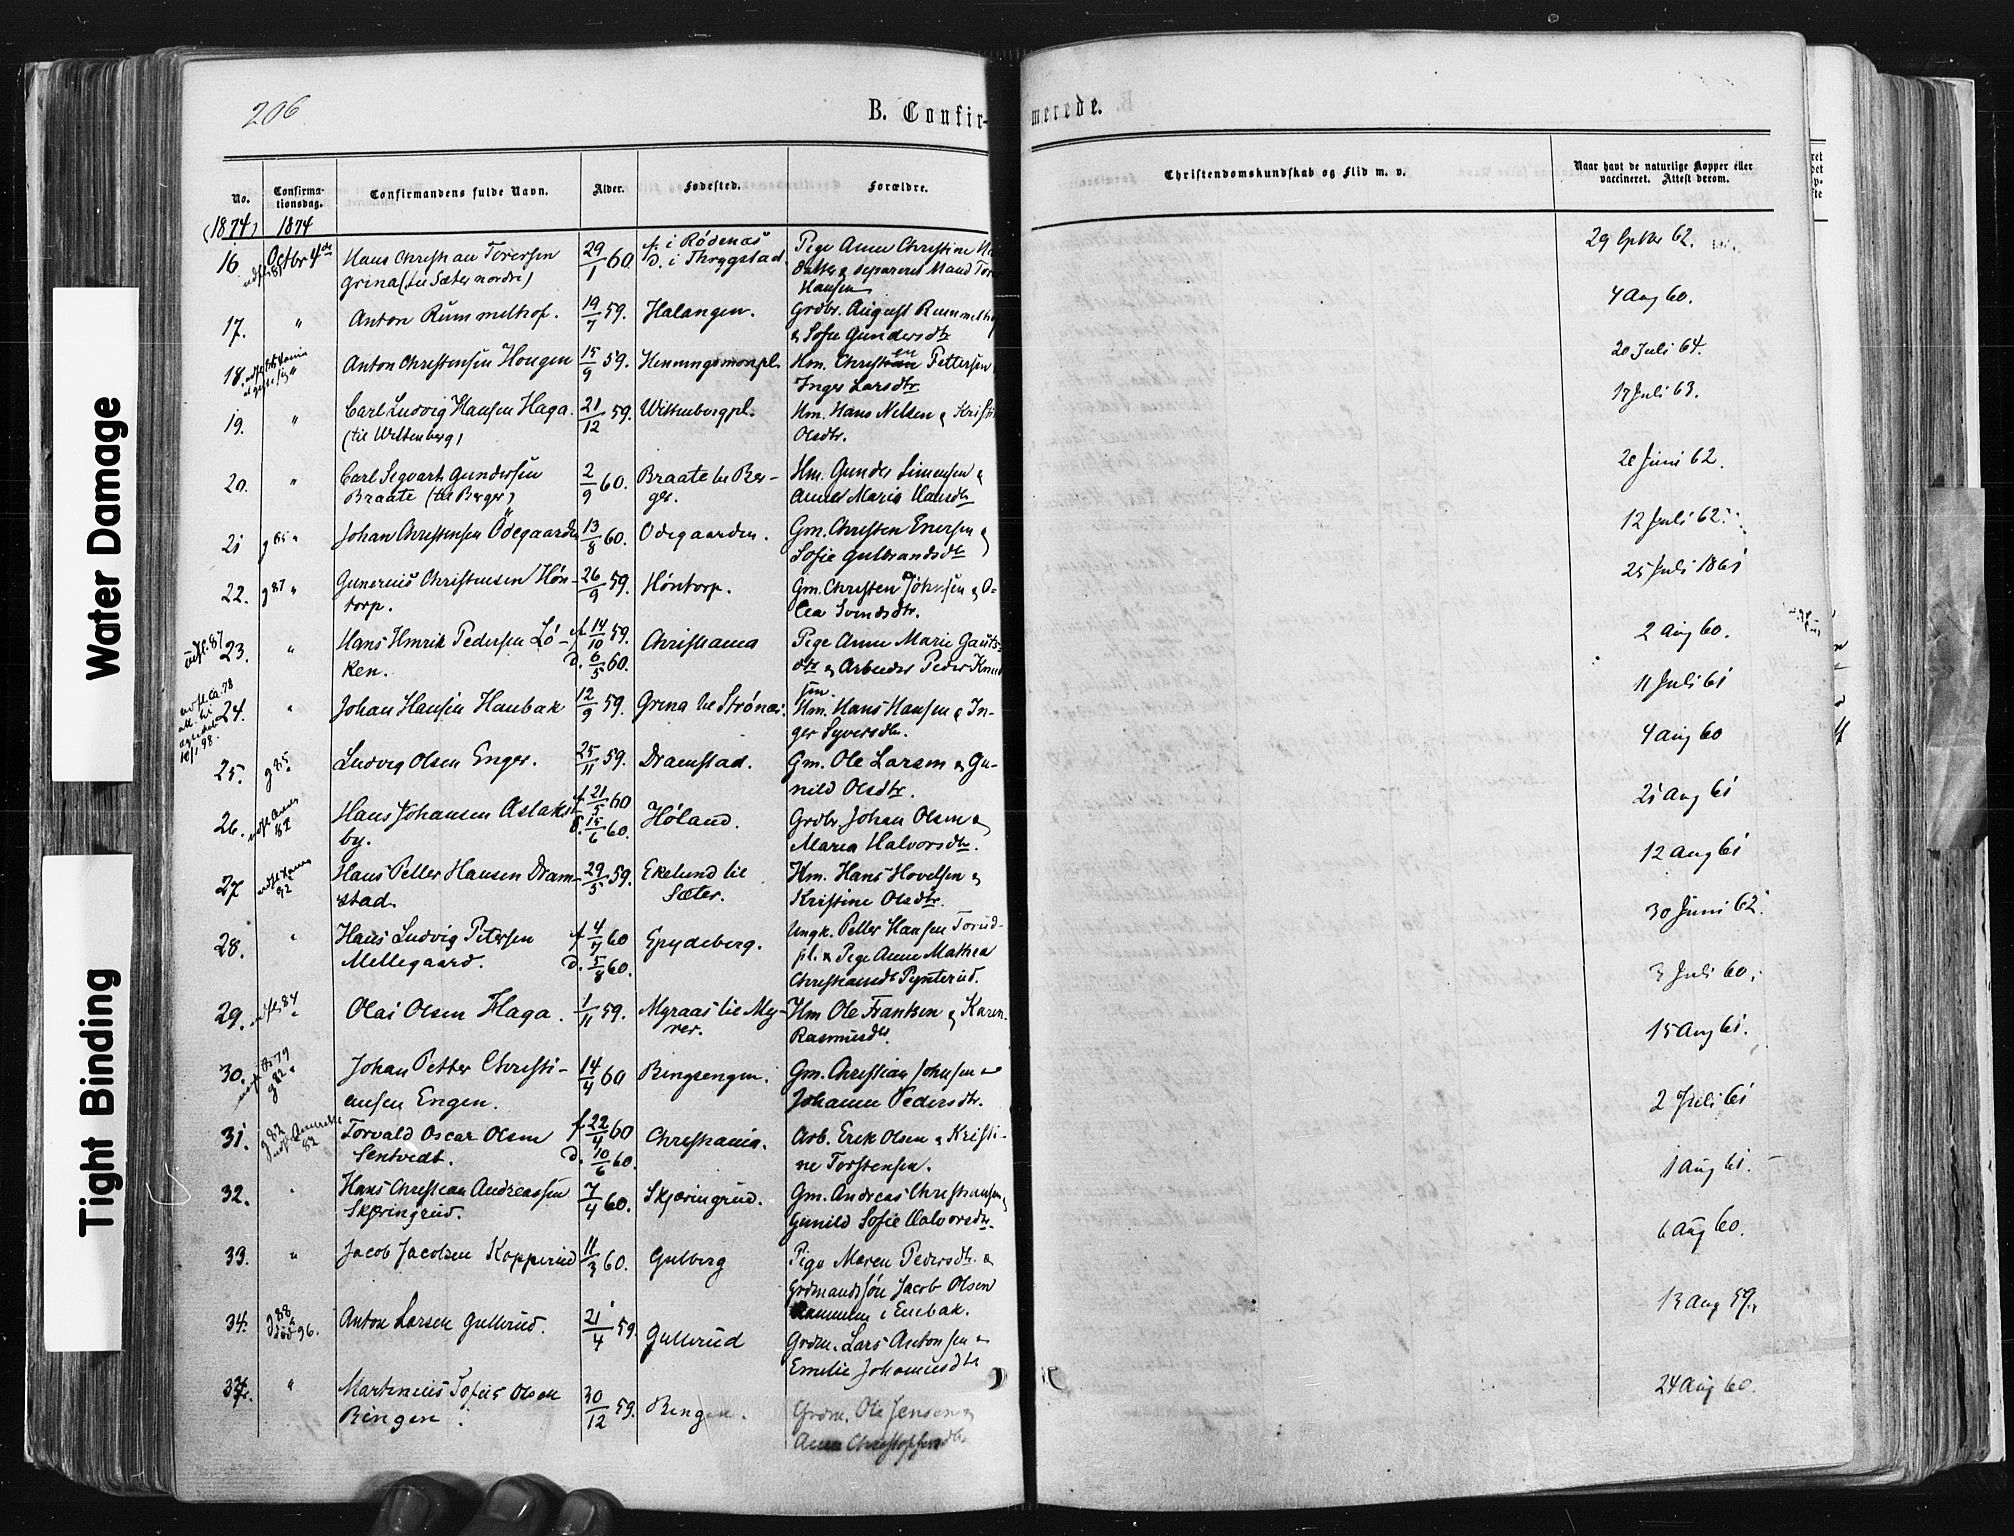 206
B. Confir-
merede.
No.
Confirma-
tionsdag.
Confirmandens fulde Navn.
Alder.
Fødested.
Forældre.
Christendomskundskab og Flid m. v.
Naar havt de naturlige Kopper eller
vaccineret. Attest derom.
(1874)
1874
16 Octbr 4de Hans Christian Torersen 29/1 60. f. i Rødenæs Pige Anne Christine
Grina (til Sæter nordre) D. i Thrygstad. Datter & separeret Mand
Hansen
29 Septbr 62.
17. " Anton Rummelhof. 19/7 59. Halangen. Grdbr. August Rummelho
& Sofie Gundersdtr
4 Aug 60.
18. " Anton Christensen Hougen 15/9 59. Henningsmonpl. Hm. Christen Pettersen
Inger Larsdtr
20 Juli 64.
19. " Carl Ludvig Hansen Haga. 21/12 59. Wittenbergpl. Hm. Hans Nilsen &
(til Wittenberg) Olsdtr.
17 Juli 63.
20. " Carl Segvart Gundersen 2/9 60. Braate til Ber- Hm. Gunder Simensen &
Braate (til Berger) ger. Anne Marie Hansdtr
20 Juni 62.
21 " Johan Christensen Ödegaarden 13/8 60. Odegaarden. Gm. Christen Enersen &
Sofie Gulbrandsdtr
12 Juli 62.
22. g 87 " Gunerius Christensen Hön- 26/9 59. Höntorp. Gm. Christen Johnsen & O-
torp. lea Svendsdtr.
25 Juli 1861
udfl. 87
23. " Hans Henrik Pedersen Lö- f. 14/10 59. Christiania Pige Anne Marie Gauts-
ken. D. 6/5 60. dtr & Arbeider Peder Knud
sen.
2 Aug 60.
10/1 98.
24. " Johan Hansen Haubak 12/9 59. Grina til Strønæs. Hm. Hans Hansen & In-
ger Syversdtr.
11 Juli 61
25. g 85 Ludvig Olsen Enger. 25/11 59. Dramstad. Gm. Ole Larsen & Gu-
nild Olsdtr.
4 Aug 60
26. Hans Johansen Aslaks- f. 21/5 60 Høland. Grdbr. Johan Olsen &
by. D. 15/6 60. Maren Halvorsdtr.
21 Aug 61
27 82 Hans Petter Hansen Dram- 29/5 59. Ekelund til Hm. Hans Hovelsen &
stad. Sæter. Kristine Olsdtr.
12 Aug 61
28. " Hans Ludvig Petersen f 4/7 60 Spydeberg. Ungk. Petter Hansen Torud-
Mellegaard. D. 5/8 60. pl. & Pige Anne Mathea
Christiansdtr Pynterud.
30 Juni 62.
29. udfl 84 Olai Olsen Haga. 1/11 59. Myraas til My- Hm Ole Frantsen & Karen
rer. Rasmusdtr.
3 Juli 60.
30. g 82 Johan Petter Christi- 14/4 60 Bingsengen. Gm. Christian Johnsen &
ansen Engen. Johanne Pedersdtr.
15 Aug 61.
31. g 82 Torvald Oscar Olsen f 22/4 60 Christiania. Arb. Erik Olsen & Kristi-
82 Sentvedt. D. 10/6 60. ne Torstensen.
2 Juli 61
32. " Hans Christian Andreassen 7/4 60. Skjæringrud. Gm. Andreas Christiansen &
Skjæringrud. Gunild Sofie Halvorsdtr.
1 Aug 61.
33. " Jacob Jacobsen Kopperud 11/3 60. Gulberg Pige Maren Pedersdtr. &
Grdmandssøn Jacob Olsen
i Enebak.
6 Aug 60.
34. g 88 død 96. Anton Larsen Gullerud. 21/4 59. Gullerud Grdm. Lars Antonsen &
Emelie Johannesdtr
13 Aug 59.
" Martinius Sofus Olsen 30/12 59. Bingen. Grdm. Ole Jensen &
Bingen. Anne Christophersdtr
24 Aug 60.
Water Damage
Tight Binding